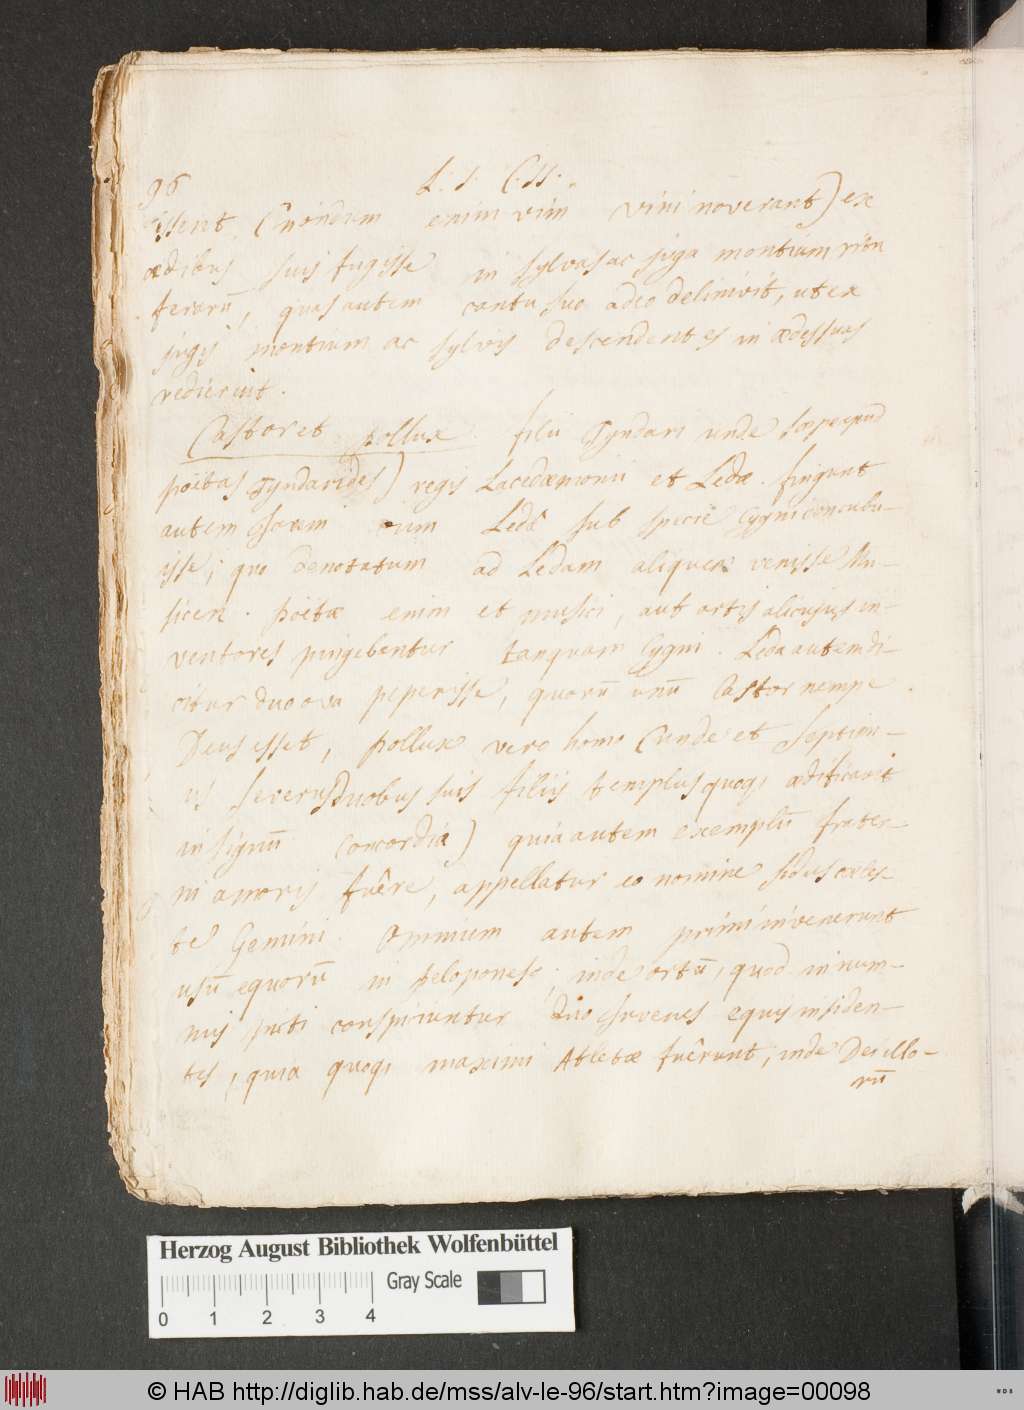 96
L. I. C. II.
issent (nondum enim vim vini noverant) ex
ædibus suis fugisse in sylvas ac juga montium
ferarū, quas autem cantu suo adeo delinivit, ut ex
jugis montium ac sylvis descendentes in ædes suas
redierint.
Castor et Pollux filii Tyndari unde sæpe apud
poëtas Tyndarides) regis Lacedæmonii et Ledæ. fingunt
autem Jovem cum Ledâ sub specie Cygni concubu-
isse; quo denotatum ad Ledam aliquem venisse Mu-
sicen. Poëtæ enim et musici, aut artis alicujus in-
ventores pingebantur tanquam Cygni. Leda autem di-
citur duo ova peperisse, quorū unū Castor nempe
Deus esset, Pollux vero homo (unde et Septimi-
us Severus duobus suis filiis templus quoq; ædificavit
in signū concordiæ) quia autem exemplū frater-
ni amoris fuêre, appellatur eo nomine sidus cœles-
te Gemini. Omnium autem primi invenerunt
usū equorū in Peloponeso, inde ortū, quod in num-
mis picti conspiciuntur duo Juvenes equis insiden-
tes, quia quoq; maximi Atletæ fuêrunt, inde Dei illo-
rū
Herzog August Bibliothek Wolfenbüttel
Gray Scale
0 1 2 3 4
© HAB http://diglib.hab.de/mss/alv-le-96/start.htm?image=00098